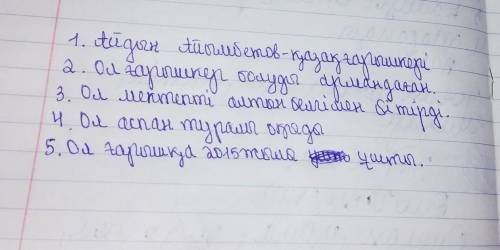 1. Айдын Айымбетов-қазақ ғарышкері
2. Ол ғарышкер болуды армандаған.
3. Ол мектепті алтын белгімен бітірді.
4. Ол аспан туралы оқады
5. Ол ғарышқа 2015 жыла ұшты.